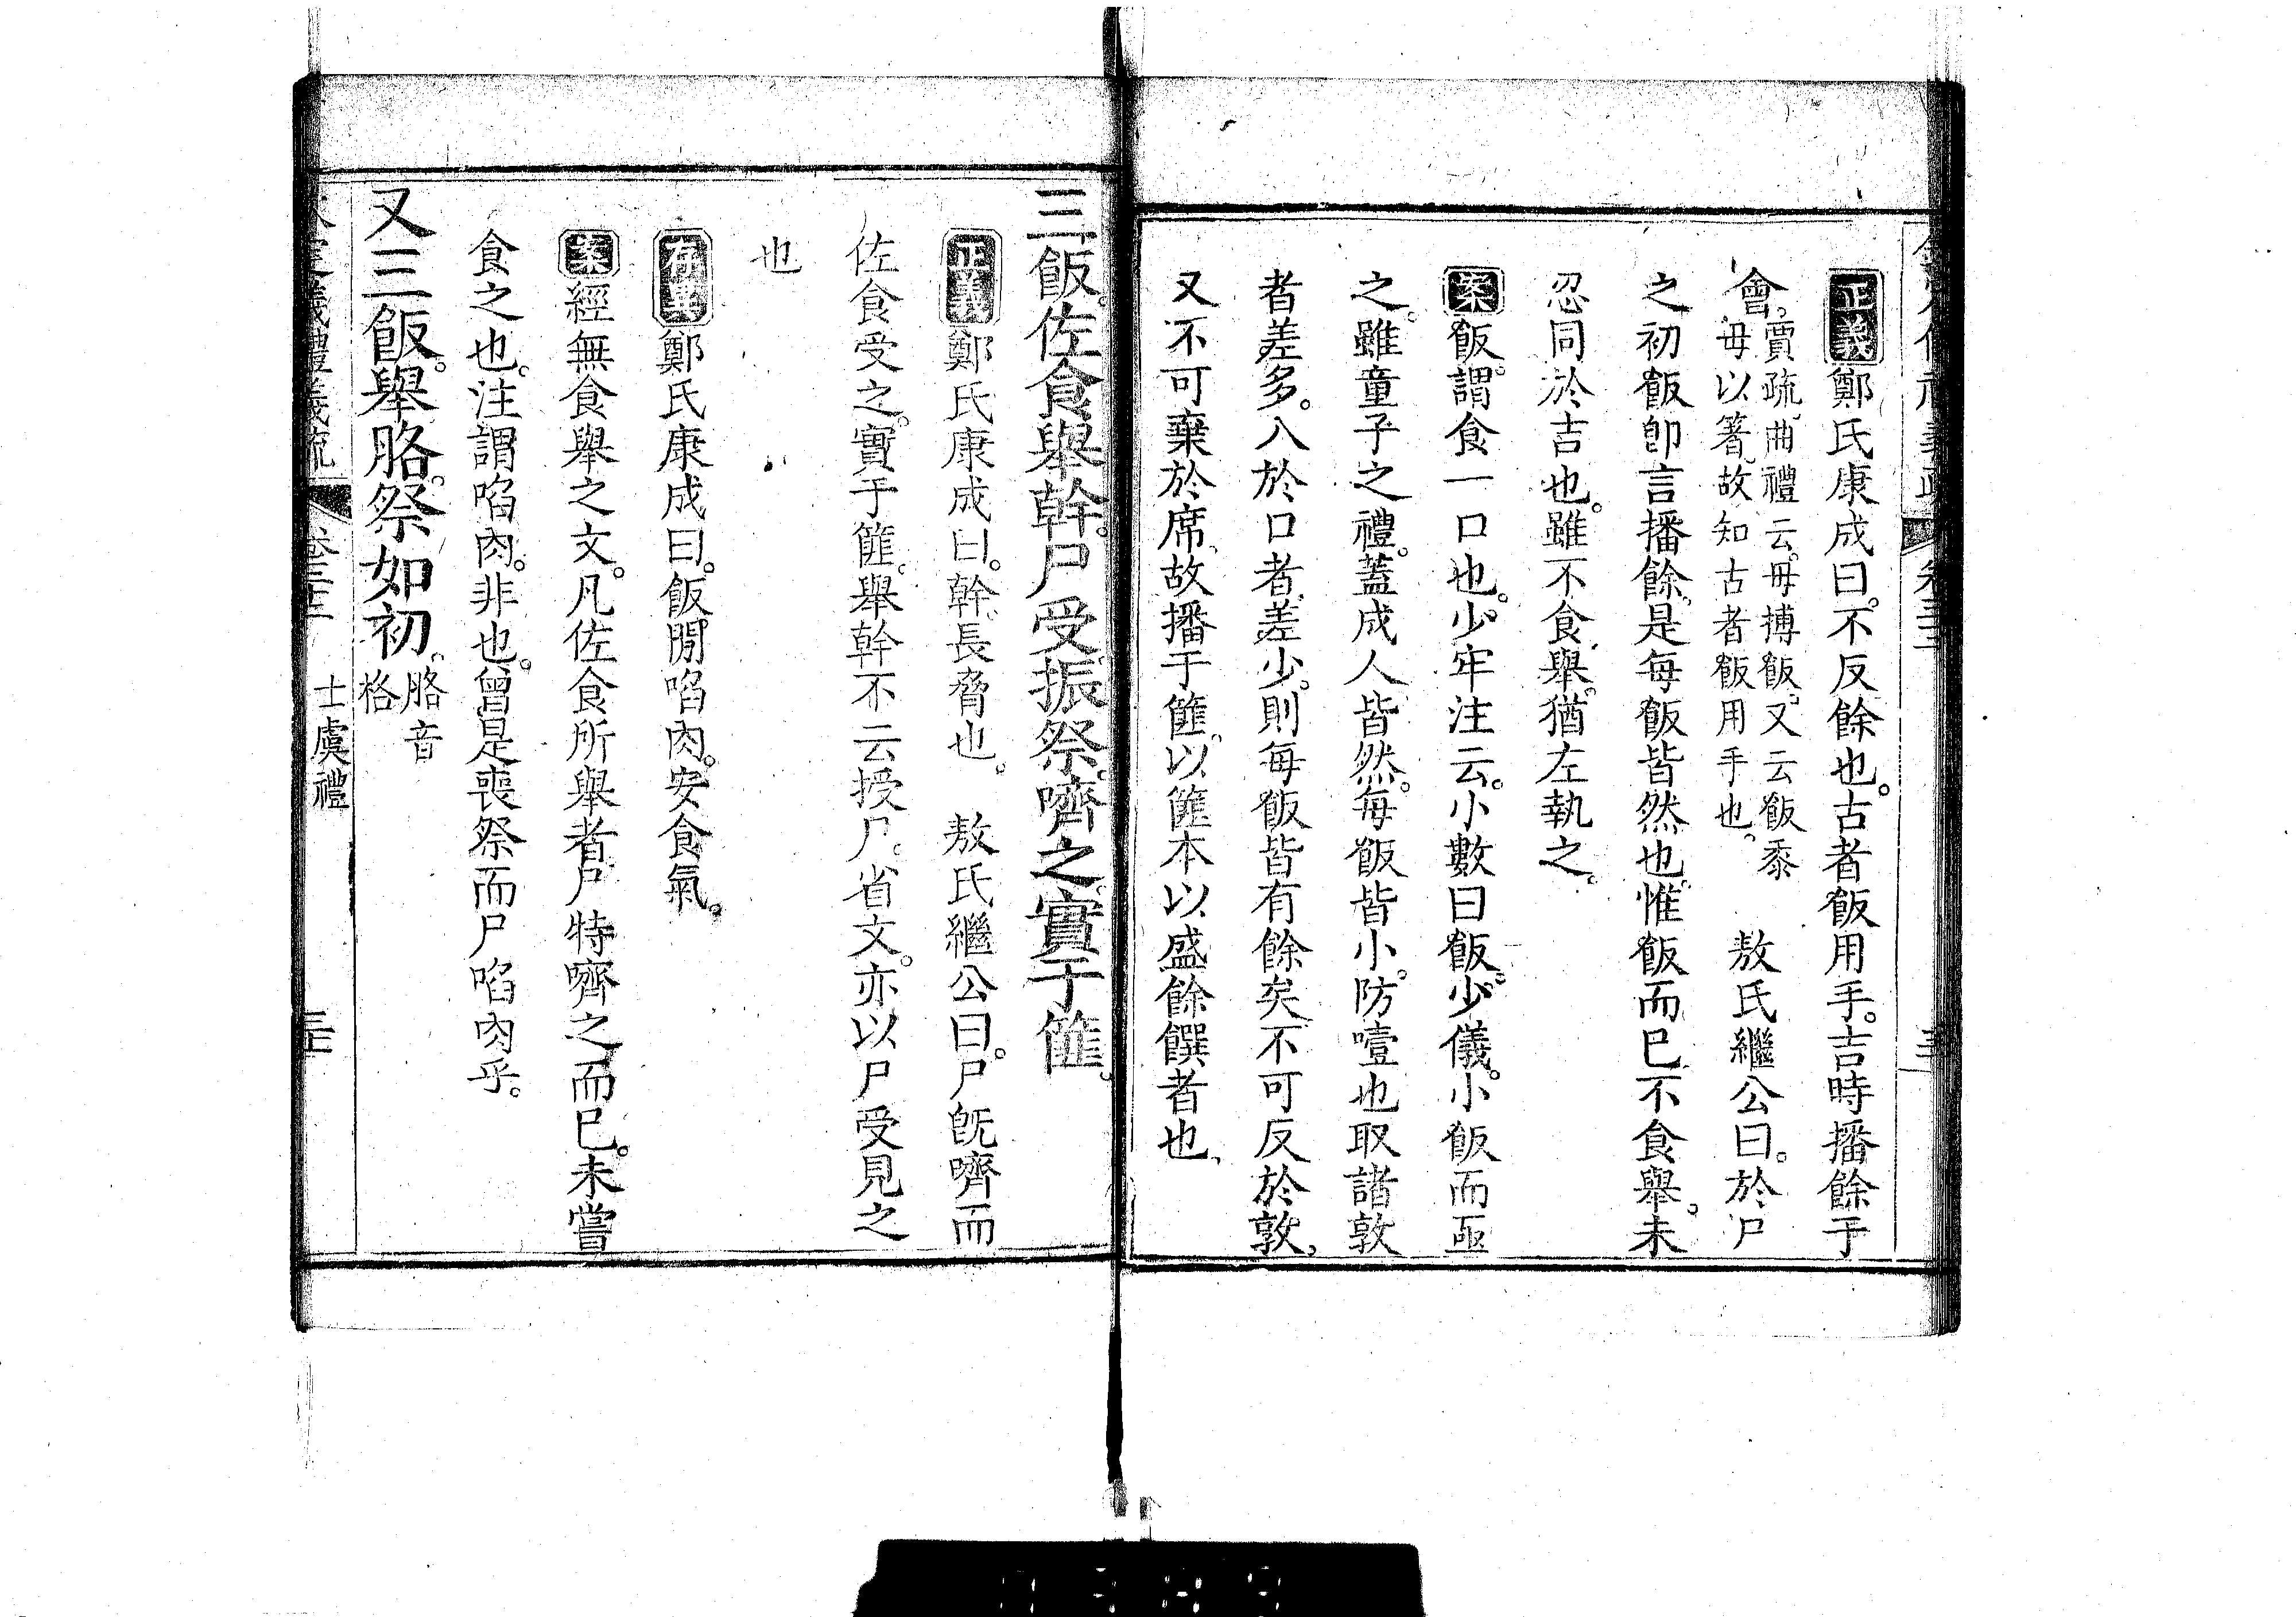 正義鄭氏康成曰。不反餘也。古者飯用手。吉時播餘于
會。賈疏、曲禮云。毋摶飯。又云飯黍
毋以箸。故知古者飯用手也。
敖氏繼公曰。於尸
之初飯卽言播餘。是每飯皆然也。惟飯而已不食舉。未
忍同於吉也。雖不食舉。猶左執之。
案飯。謂食一口也。少牢注云。小數曰飯。少儀。小飯而亟
之。雖童子之禮。蓋成人皆然。每飯皆小。防噎也取諸敦
者差多。入於口者差少。則每飯皆有餘矣不可反於敦、
又不可棄於席、故播于篚。以篚本以盛餘饌者也、
三飯。佐食舉幹。尸受振祭。嚌之。實于篚。
正義鄭氏康成曰。幹、長脅也。 敖氏繼公曰。尸旣嚌而
佐食受之。實于篚。舉幹不云授尸。省文。亦以尸受見之
也
存異鄭氏康成曰。飯閒啗肉。安食氣。
案經無食舉之文。凡佐食所舉者尸特嚌之而已。未嘗
食之也。注謂啗肉。非也。曾是喪祭而尸啗肉乎。
又三飯。舉胳。祭如初。
胳音
格
儀禮義疏
卷三十三
士虞禮